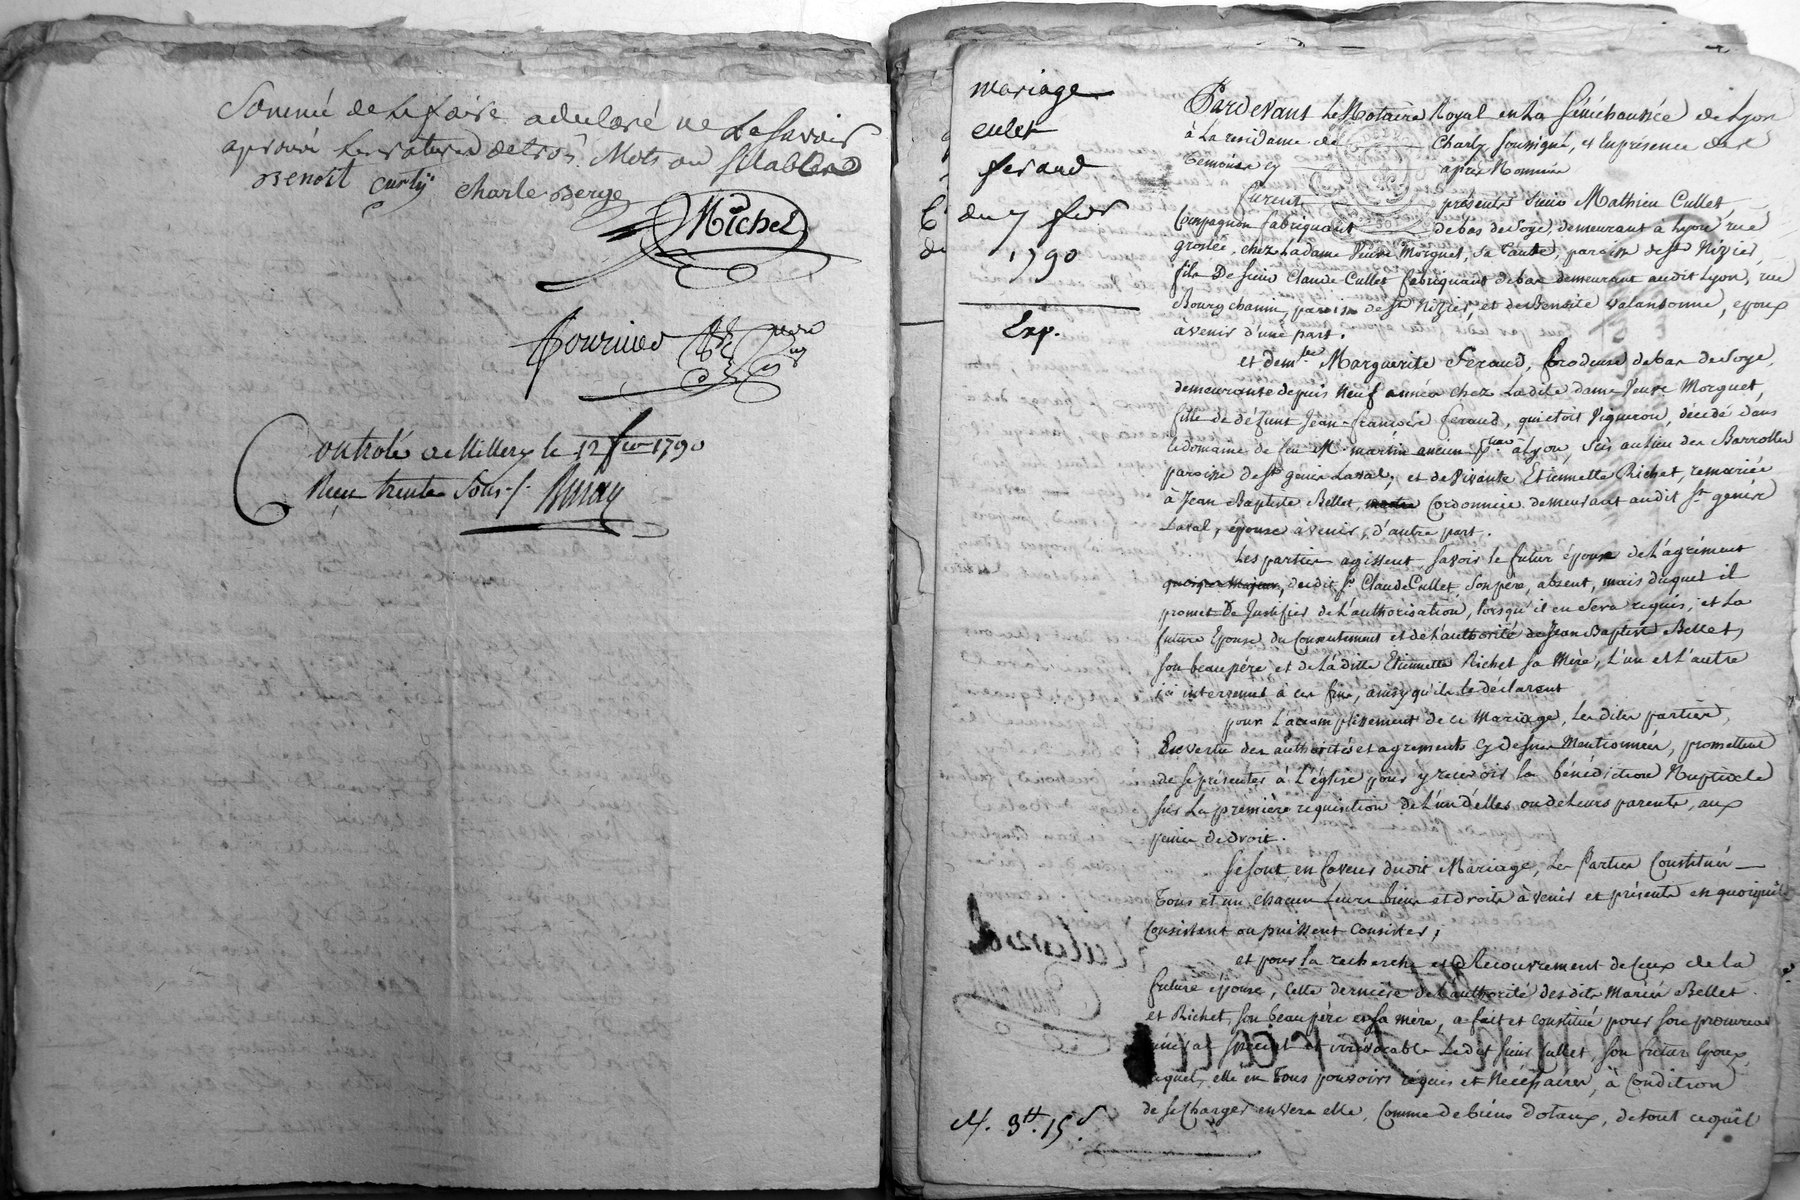 Sommé de le faire a declaré ne le savoir
aprouvé les ratures de trois mots ou sillables
Benoit Curty charle Berge
Michel
Fournier
Controlé a Millery le 12 fev 1790
Reçu trente sous
mariage
culet
feraud
du 7 fevr
1790
Exp.
Pardevant le Notaire Royal en la Sénéchaussée de Lyon
à la residance de Charly soussigné, et en présence des
temoins cy après Nommés
furent présents sieur Mathieu Cullet
Compagnon fabriquant de bas de soye, demeurant à Lyon rue
grolée, chez la dame Veuve Morguet, sa tante, paroisse de St Nizier,
fils De sieur Claude Cullet fabriquant de bas demeurant audit Lyon, rue
Bourgchanin, paroisse de St Nizier, et de Benoite Valansonne, epoux
à venir d'une part.
et demlle Marguerite Feraud, brodeuse de bas de soye,
demeurante depuis Neuf années chez la dite dame Veuve Morguet,
fille de défunt Jean-françois feraud, qui etoit Vigneron, décédé dans
le domaine de feu Mr. martin ancien à Lyon, sis au lieu des Barrolles
paroisse de St genis Laval, et de vivante Etiennette Richet, remariée
à Jean Baptiste Bellet, Cordonnier demeurant audit St genis
Laval, épouse à venir, d'autre part.
Les parties agissent, savoir le futur époux de L'agrément
quoique majeur, dudit sr Claude Cullet son père, absent, mais duquel il
promet De Justifier de L'authorisation, lorsqu'il en sera requis, et La
future Epouse du Consentement et de L'authorité de Jean Baptiste Bellet,
son beau père et de la ditte Etiennette Richet sa Mère, L'un et L'autre
ici intervenus à ces fins, ainsy qu'ils le déclarent
pour L'accomplissement de ce Mariage, Les dites parties,
En vertu des authorités et agrements cy dessus Mentionnés, promettent
de se présenter à L'église pour y recevoir la bénédiction Nuptiale
sur La première requisition de L'un d'elles ou de Leurs parents, aux
peines de droit.
Se sont en faveur dudit Mariage, Les Parties Constitués
Tous et un chacun Leurs biens et droits à venir et présents en quoi qu'ils
Consistent ou puissent Consister,
et pour la recherche et Recouvrement de Ceux de la
future épouse, Cette dernière de L'authorité desdits Mariés Bellet
et Richet, son beau père et sa mère, a fait et constitué pour son procureur
général special et irrévocable Ledit sieur Cullet, son futur Epoux,
auquel, elle en Tous pouvoirs requis et Nécessaires, à Condition
de se Charger envers elle, Comme de biens dotaux, de tout ce qu'il
15 s